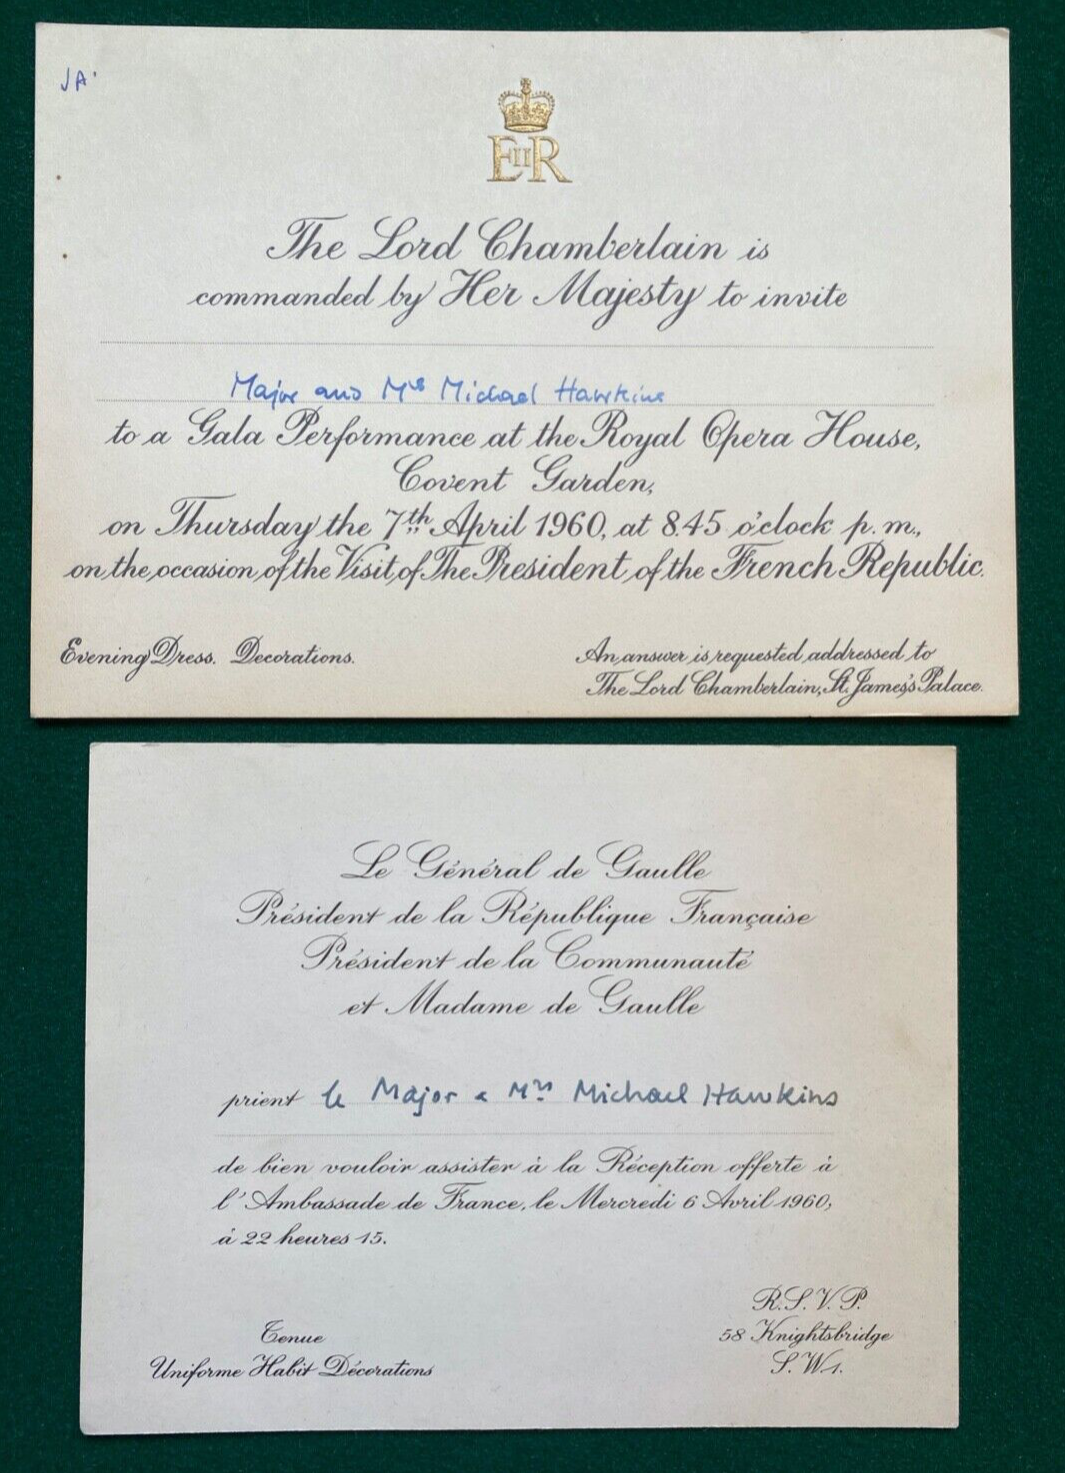 JA.
EIIR
The Lord Chamberlain is
commanded by Her Majesty to invite
Major and Mrs Michael Hawkins
to a Gala Performance at the Royal Opera House,
Covent Garden,
on Thursday the 7th April 1960, at 8.45 o'clock p.m.,
on the occasion of the Visit of The President of the French Republic.
Evening Dress. Decorations.
An answer is requested addressed to
The Lord Chamberlain, St. James's Palace.
Le Général de Gaulle
Président de la République Française
Président de la Communauté
et Madame de Gaulle
prient le Major & Mrs Michael Hawkins
de bien vouloir assister à la Réception offerte à
l'Ambassade de France, le Mercredi 6 Avril 1960,
à 22 heures 15.
Tenue
Uniforme Habit Décorations
R.S.V.P.
58 Knightsbridge
S.W.1.